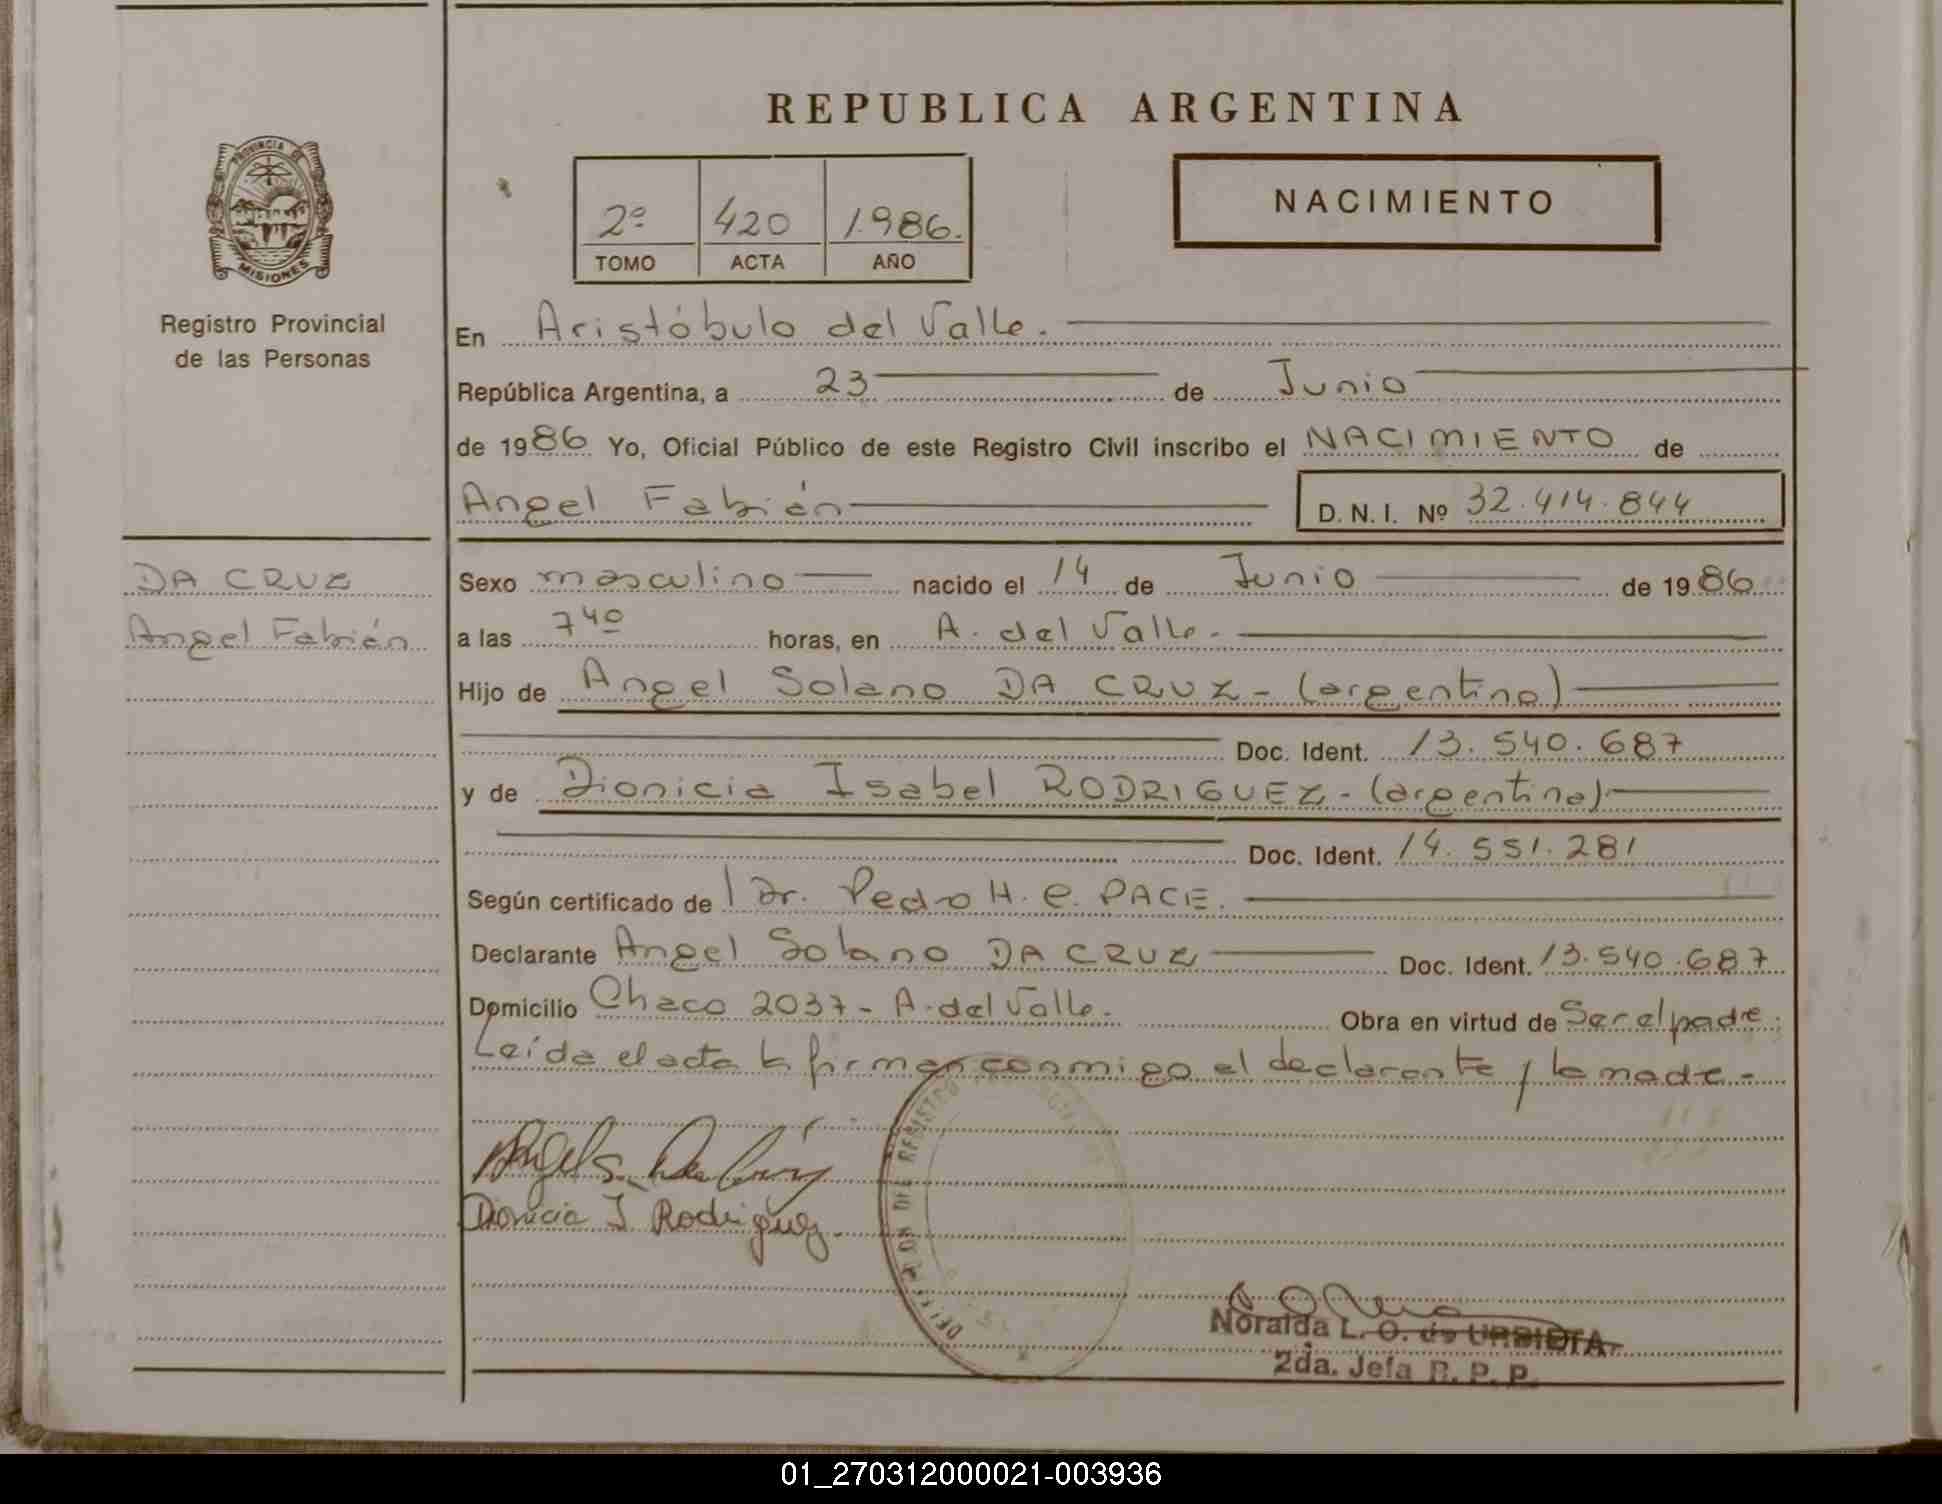 REPUBLICA ARGENTINA
PROVINCIA DE
MISIONES
Registro Provincial
de las Personas
2º 420 1.986.
TOMO ACTA AÑO
NACIMIENTO
En Aristóbulo del Valle.
República Argentina, a 23 de Junio
de 1986 Yo, Oficial Público de este Registro Civil inscribo el NACIMIENTO de
Angel Fabián D. N. I. Nº 32.414.844
DA CRUZ
Angel Fabián
Sexo masculino nacido el 14 de Junio de 1986
a las 7 40 horas, en A. del Valle.
Hijo de Angel Solano DA CRUZ - (argentino)
Doc. Ident. 13.540.687
y de Dionicia Isabel RODRIGUEZ - (argentina)
Doc. Ident. 14.551.281
Según certificado de Dr. Pedro H. C. PACE.
Declarante Angel Solano DA CRUZ Doc. Ident. 13.540.687
Domicilio Chaco 2037 - A. del Valle. Obra en virtud de Ser el padre.
Leída el acta la firman conmigo el declarante y la madre -
Angel S. Da Cruz
Dionicia I Rodriguez.
DEL REGISTRO
Noralda L. O. de URBIETA
2da. Jefa R. P. P.
01_270312000021-003936